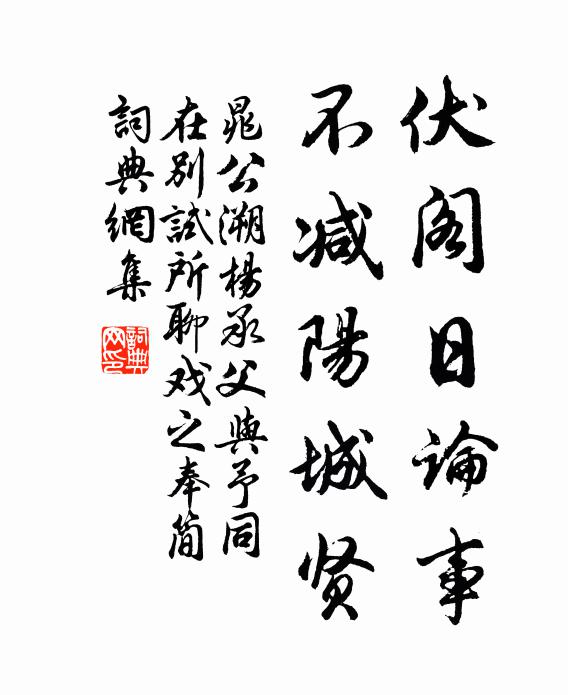 伏阁日論事
不减陽城贤
晁公溯楊承父與予同
在别試所聊戏之奉简
詞典網集
詞典
网印